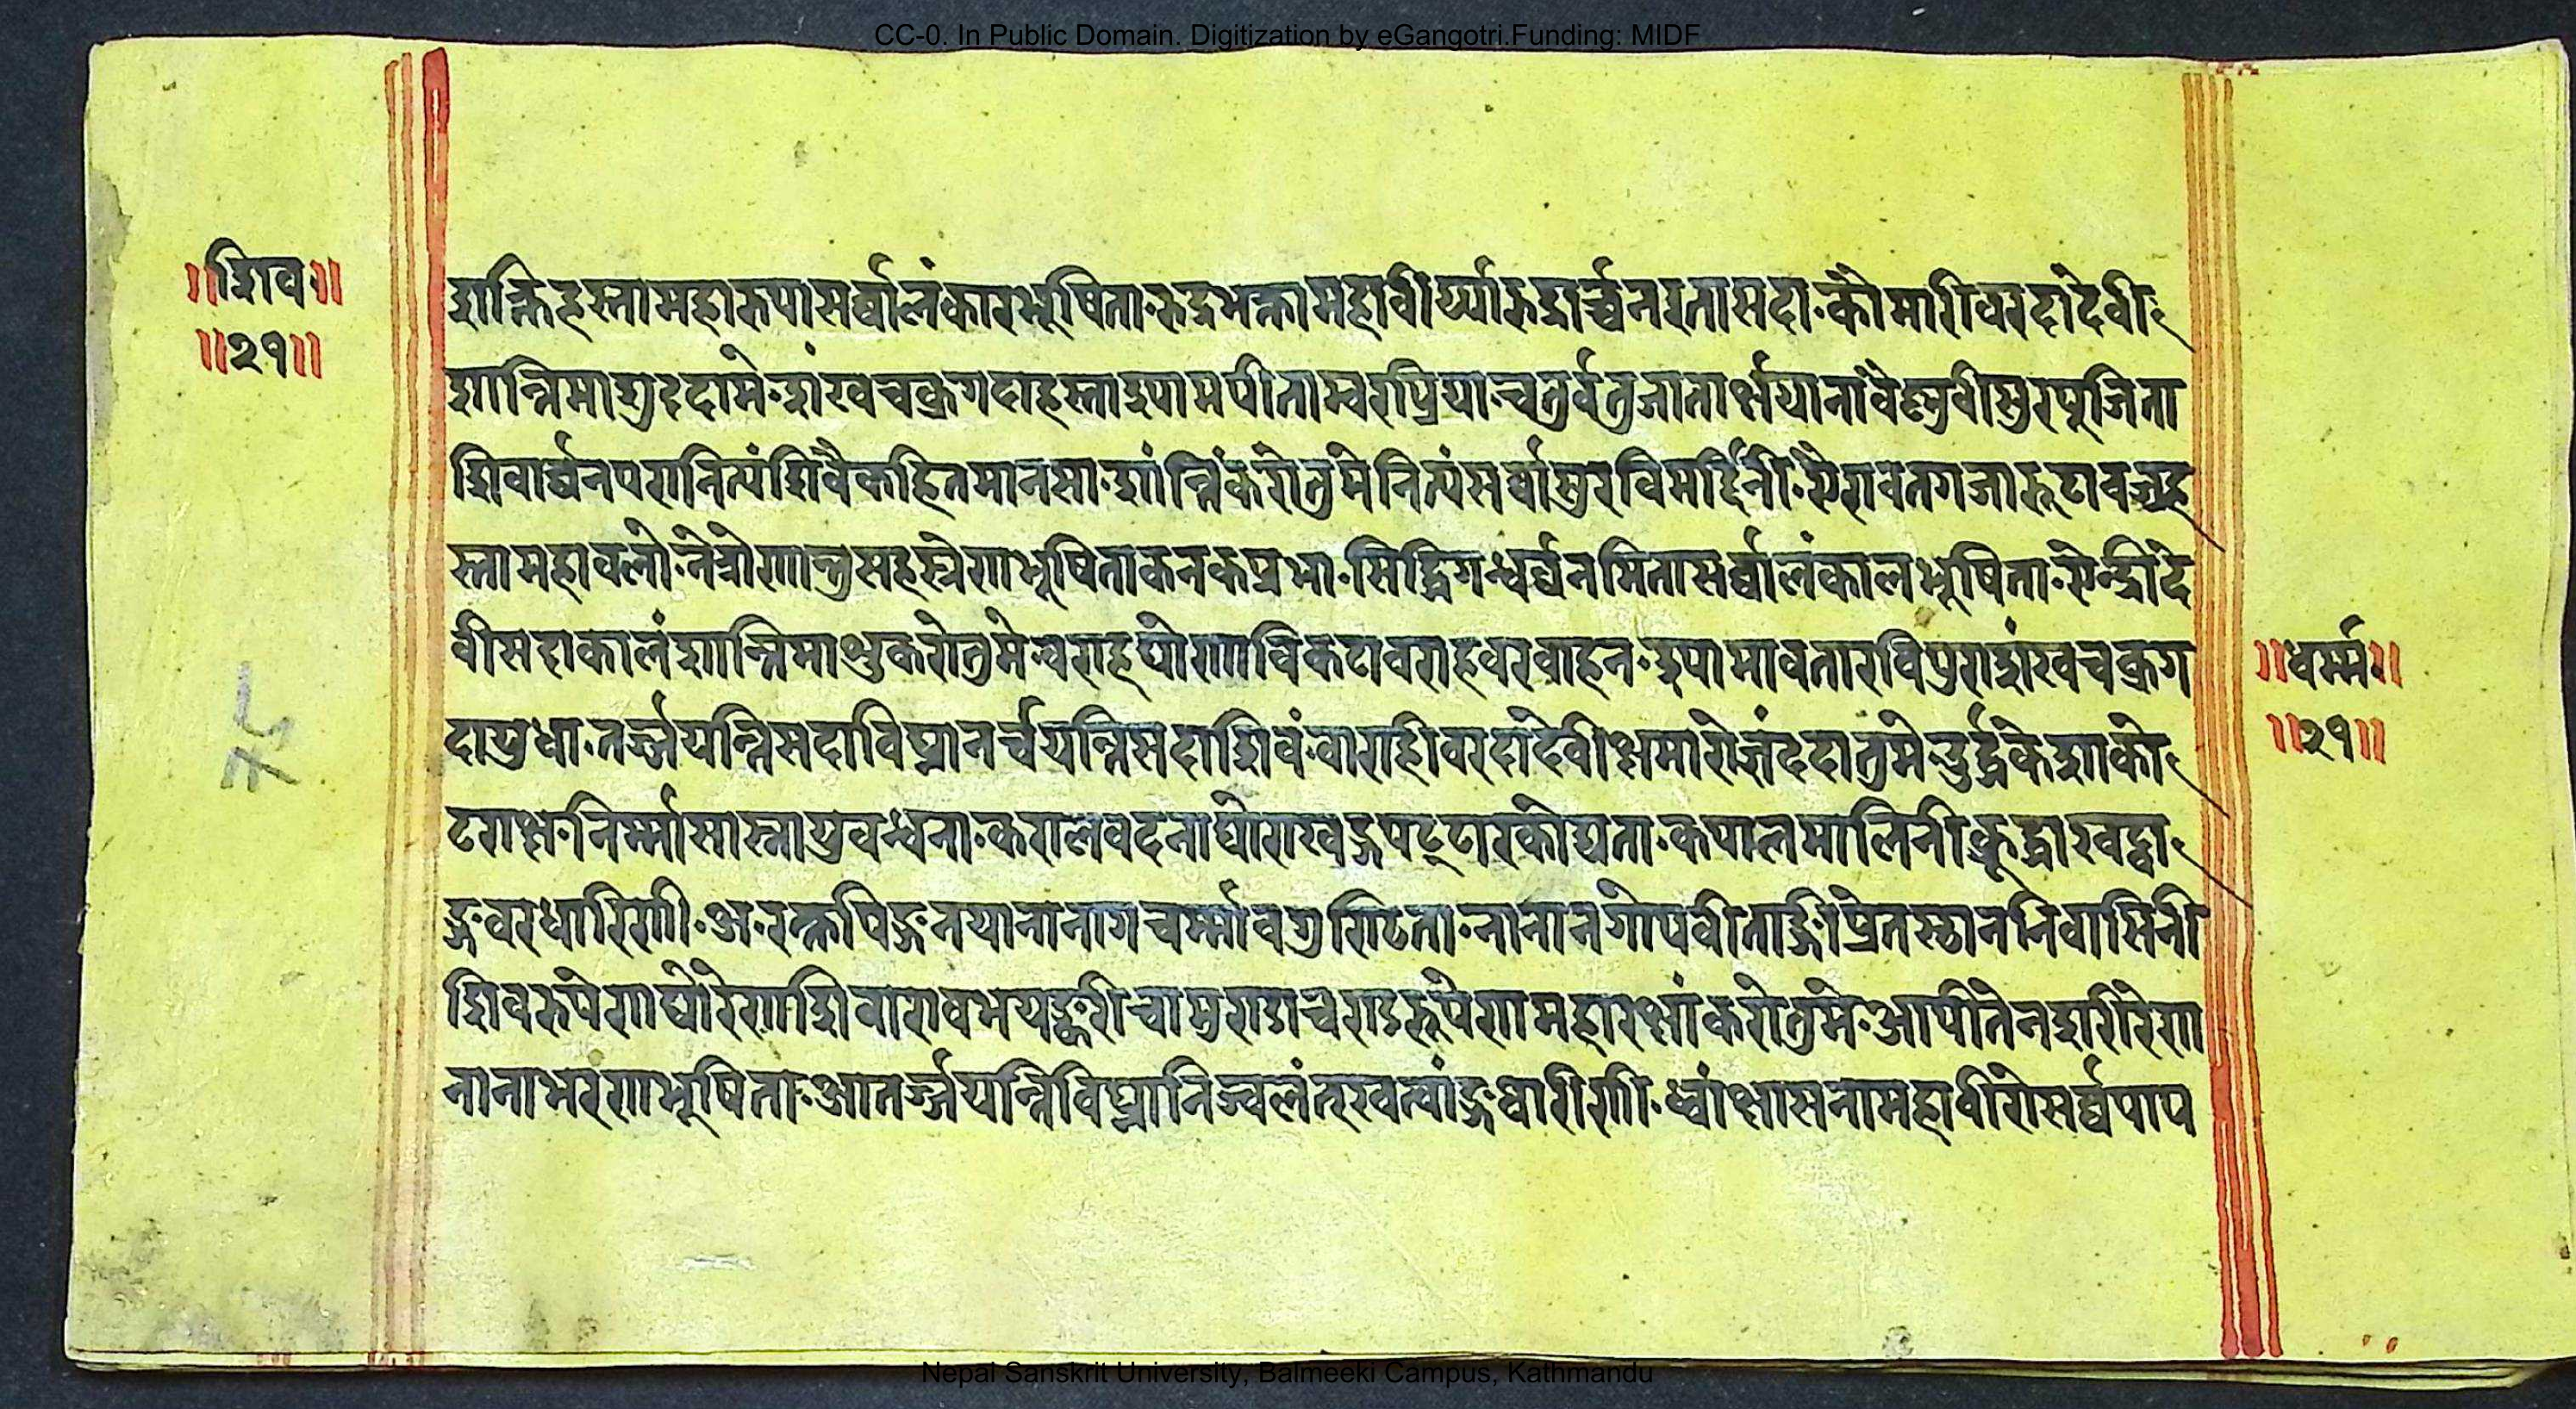 CC-0. In Public Domain. Digitization by eGangotri.Funding: MIDF
॥शिव॥
॥२१॥
शक्तिहस्तामहारुपासर्व्वालंकारभूषिता.रुद्रभक्तामहावीर्य्यारुद्रार्च्चनरतासदा.कौमारिवरदादेवी
शान्तिमाशुददामे.शंखचक्रगदाहस्ताश्यामपीताम्बरप्रिया.चतुर्वतुजातार्क्षयानांवैष्णवीसुरपूजिता
शिवार्च्चनपरानित्यंशिवैकहितमानसा.शांन्तिंकरोतुमेनित्यंसर्वासुरविमर्द्दिनी.ऐरावतगजारूटावज्रह
स्तामहावलो.नेत्रोणान्तुसहस्त्रेणभूषिताकनकप्रभा.सिद्धिगन्धर्व्वनमितासर्व्वालंकालभूषिता.ऐन्द्रीदे
वीसदाकालंशान्तिमाशुकरोतुमे.वराहघोणाविकटावराहवरवाहन.श्यामावतारविपुराशंखचक्रग
दायुधा.तर्ज्जयन्तिसदाविघ्नानर्चयन्तिसदाशिवं.वाराहीवरदादेवीक्षमारोज्ञंददातुमे.दुर्द्धकेशाको
टराक्ष.निर्म्मासास्नायुवन्धना.करालवदनाघोराखड्गपट्टारकोद्यता.कपालमालिनीक्रूद्धाखट्वा
ङ्गवरधारिणी.अ.रक्तपिङ्गनयानानागचर्म्मावगुण्ठिता.नानानगोपवीताङ्गीप्रेतस्थाननिवासिनी
शिवरुपेणघोरेणशिवारावभयङ्करीचामुण्डाचण्डरूपेणमहारक्षांकरोतुमे.आपीतेनशरीरेण
नानाभरंणभूषिता.आतर्ज्जयन्तिविघ्नानिज्वलंतखत्वांङ्गधारीणी.ध्वांक्षासनामहावीरोसर्व्वपाप
॥धर्म्म॥
॥२१॥
Nepal Sanskrit University, Balmeeki Campus, Kathmandu